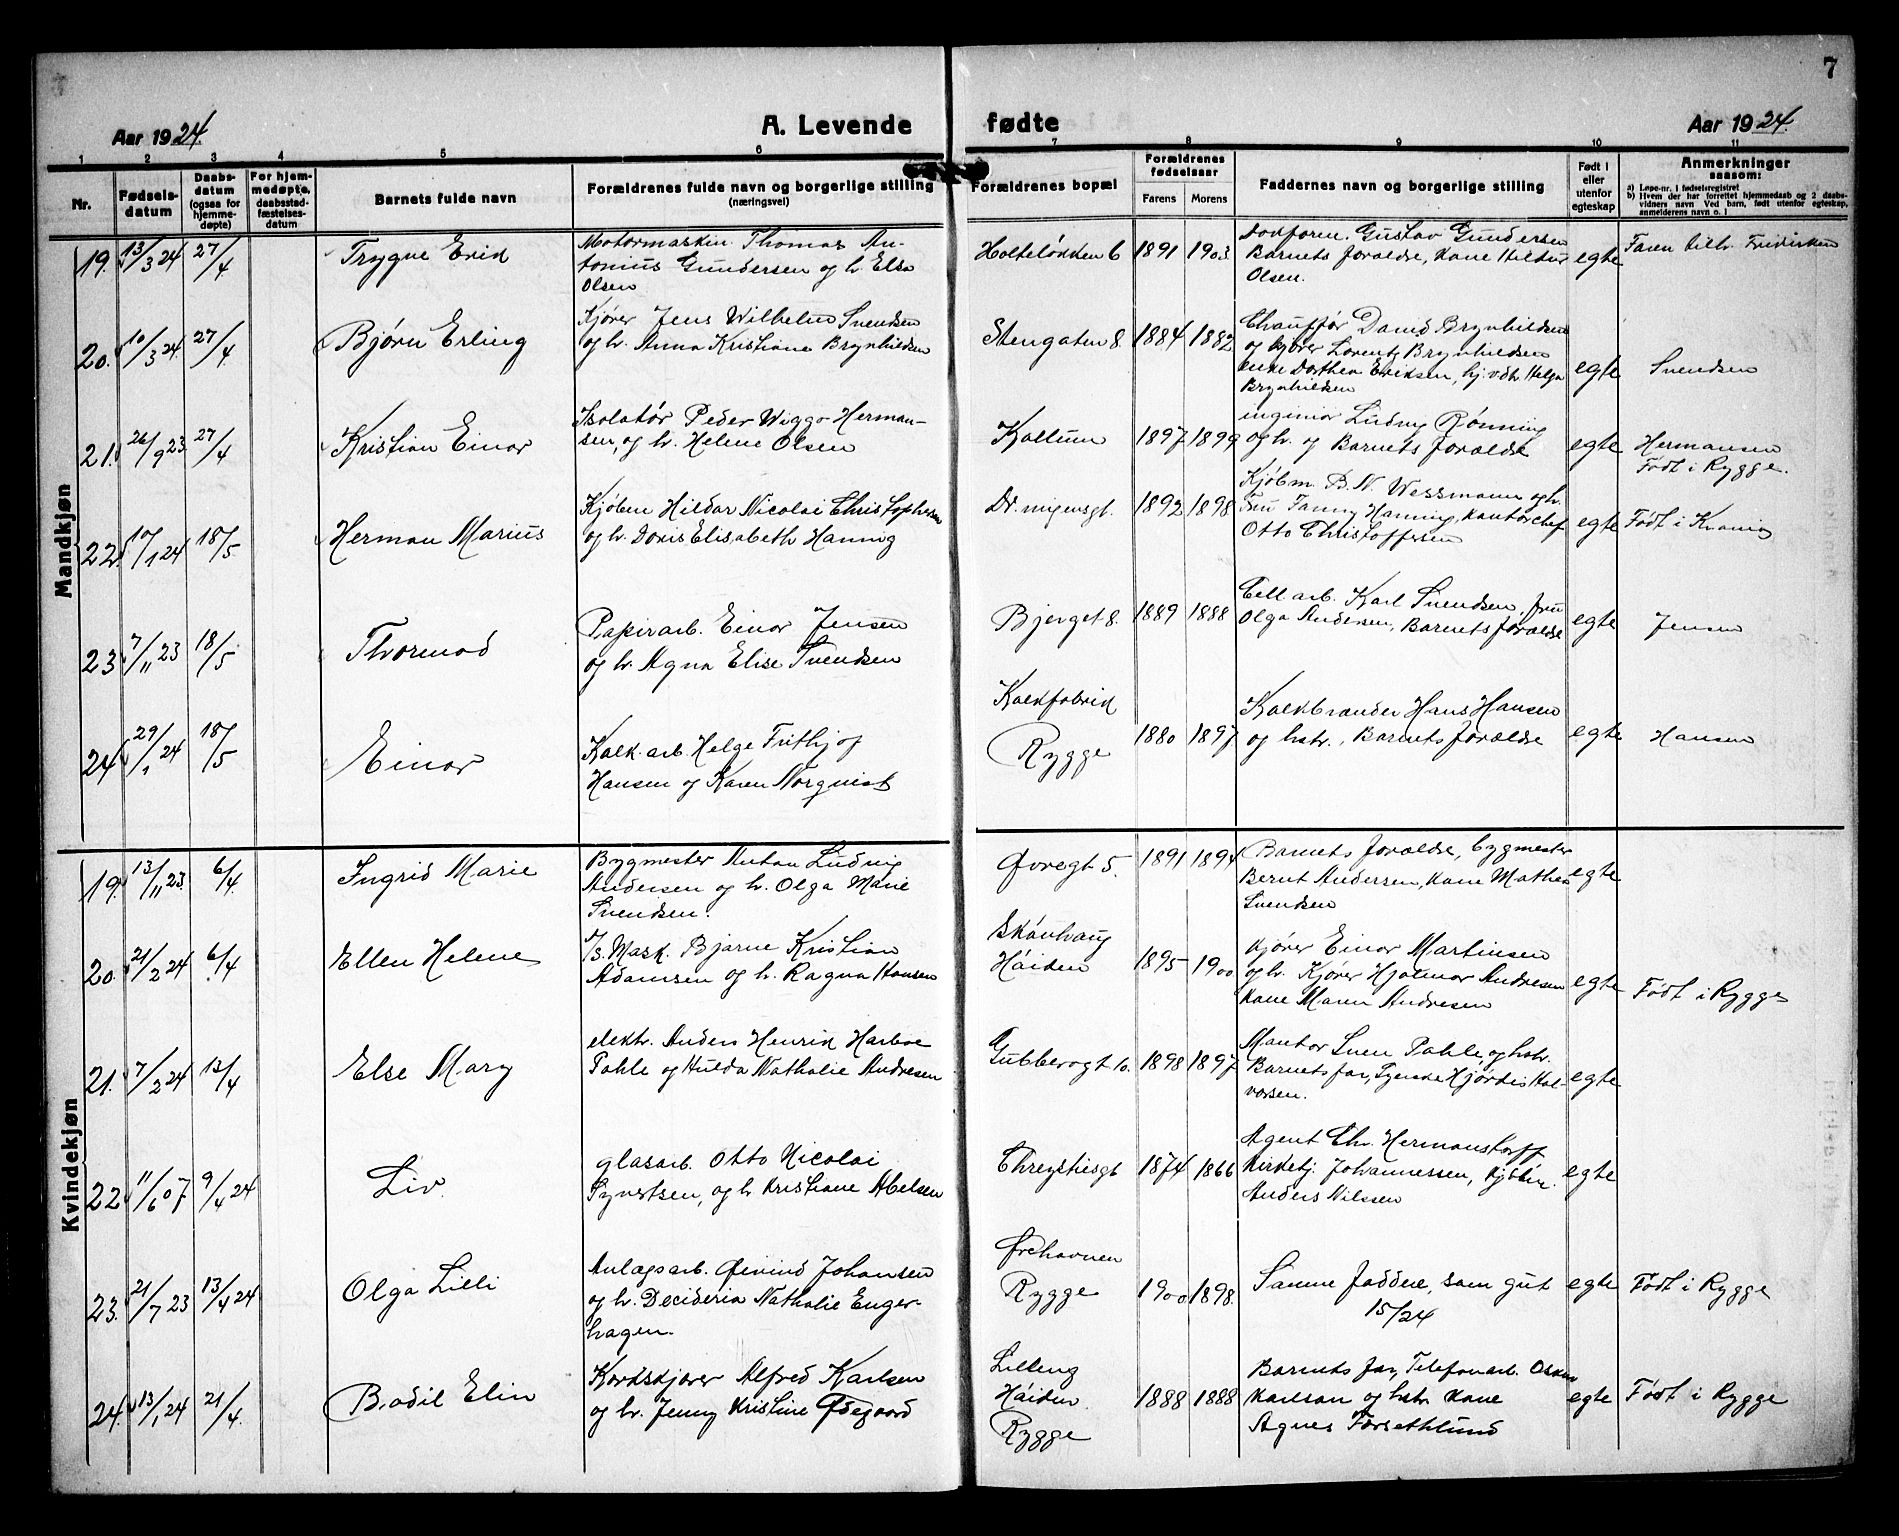 7
Aar 1924.
A. Levende fødte
Aar 1924.
1 2 3 4 5 6 7 8 9 10 11
Nr.
Fødsels-
datum
Daabs-
datum
(ogsaa for
hjemme-
døpte)
For hjem-
medøpte,
daabsstad-
fæstelses-
datum
Barnets fulde navn
Forældrenes fulde navn og borgerlige stilling
(næringsvei)
Forældrenes bopæl
Forældrenes
fødselsaar
Farens Morens
Faddernes navn og borgerlige stilling
Født i
eller
utenfor
egteskap
Anmerkninger
saasom:
a) Løpe-nr. i fødselsregistret
b) Hvem der har forrettet hjemmedaab og 2 daabs-
vidners navn Ved barn, født utenfor egteskap,
anmelderens navn o. l
Mandkjøn
19. 13/3 24 27/4 Trygve Erik
Motormaskin. Thomas An-
tonius Gundersen og h. Elsa
Olsen
Holteløkken 6 1891 1903.
Gustav Gundersen
Barnets forældre, kone
Olsen.
egte
Faren
20. 10/3 24. 27/4 Bjørn Erling
Kjører Jens Wilhelm Svendsen
og h. Anna Kristiane Brynhildsen
Stengaten 8. 1884 1882
Chauffør David Brynhildsen
og kjører Lorentz Brynhildsen
enke Dorthea Eriksen, Helga
Brynhildsen
egte Svendsen
21. 26/9 23 27/4 Kristian Einar
Isolatør Peder Wiggo Herman-
sen, og h. Helene Olsen
Kallum 1897 1899
ingeniør Ludvig Rønning
og h. og Barnets forældre
egte Hermansen
Født i Rygge.
22. 10/1 24 18/5 Herman Marius
Kjøbm Hildar Nicolai Christophersen
og h. Doris Elisabeth Hannig
1892 1898
Kjøbm. B. N. Wessmann og h.
Fru Fanny Hanning, kontorchef
Otto Christoffersen
egte Født i
23 7/11 23 18/5 Thormod
Papirarb. Einar Jensen
og h. Agna Elise Svendsen
Bjerget 8. 1889 1888
Cell arb. Karl Svendsen, fru
Olga Andersen, Barnets forældre
egte Jensen
24 29/1 24 18/5 Einar
Kalk. arb. Helge Frithjof
Hansen og Karen Norqvist
Kalkfabrik
Rygge 1880 1897
Kalkbrænder Hans Hansen
og hstr., Barnets forældre
egte Hansen
Kvindekjøn
19. 13/11 23 6/4. Ingrid Marie
Bygmester Anton Ludvig
Andersen og h. Olga Marie
Svendsen.
Øvregt 5. 1891 1894
Barnets forældre, bygmester
Bernt Andersen, kone Mathea
Svendsen
egte
20. 21/2 24 6/4 Ellen Helene
Mask. Bjarne Kristian
Adamsen og h. Ragna Hansen
Skånhaug
Høiden 1895 1900
kjører Einar Martinsen
og h. Kjører Hjalmar Andresen
kone Maren Andresen
egte Født i Rygge
21. 7/2 24 13/4 Else Mary
elektr. Anders Henrik Harboe
Pahle og Hulda Nathalie Andresen
Gubberogt 10. 1898 1897
Sven Pahle, og hstr.
Barnets far, Hjørdis Hal-
vorsen.
egte
22 11/6 07 9/4 24 Liv.
glasarb. Otto Nicolai
Syvertsen, og h Kristiane Abelsen
Chrystiesgt 1874 1866
Agent Chr. Hermanstorff
Kirketj. Johannessen, Kjøbm.
Anders Nilssen
egte
23. 21/7 23 13/4 24 Olga Lilli
Anlægsarb. Øivind Johansen
og h. Decideria Nathalie Enger-
hagen.
Ørehavnen
Rygge 1900 1898.
Samme faddere, som gut
15/24
egte Født i Rygge
24. 13/1 24 21/4. Bodil Elin
Kordskjører Alfred Karlsen
og h. Jenny Kristine Ødegaard
Lilleng
Høiden.
Rygge
1888 1888
Barnets far, Telefonarb. Oskar
Karlson og hstr kone
Agnes Forsethlund
egte Født i Rygge